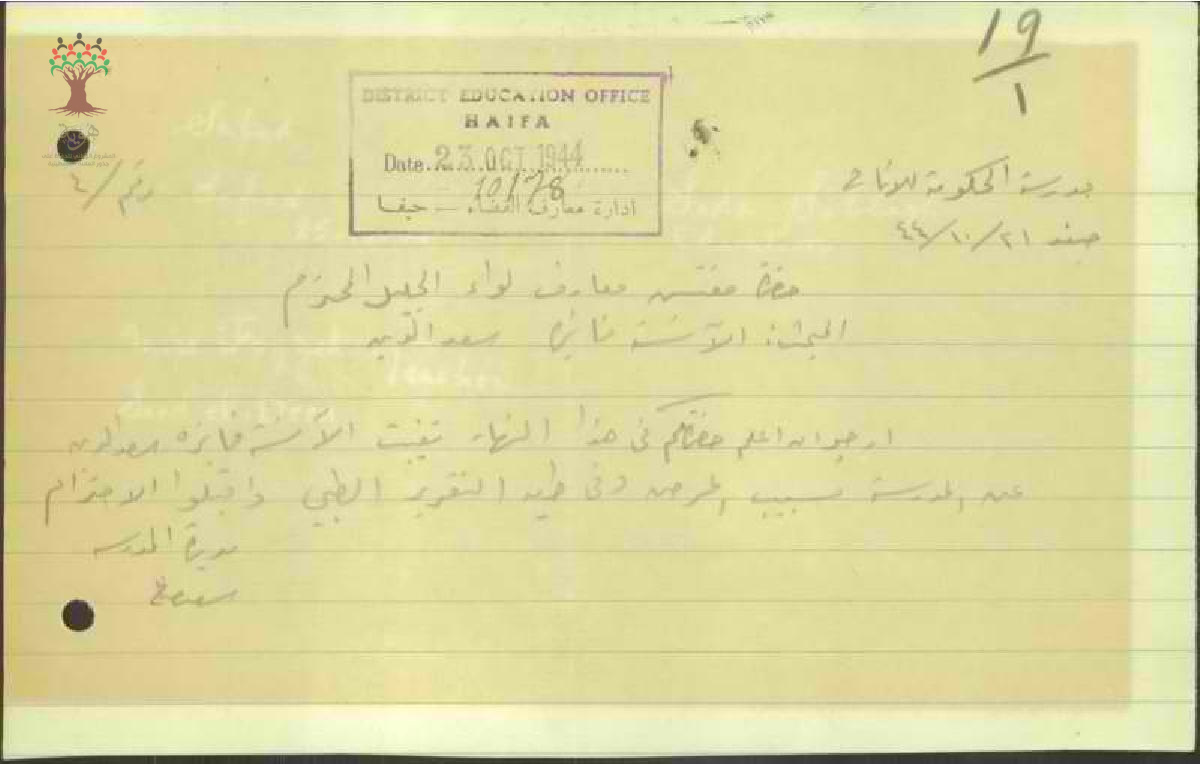 19/1
DISTRICT EDUCATION OFFICE
HAIFA
Date..23 OCT 1944
10/78
ادارة معارف القضاء — حيفا
مدرسة الحكومة للاناث
رقم / ٤
صفد ٢١/١٠/٤٤
حضرة مفتش معارف لواء الجليل المحترم
المبحث: الآنسة فائزة سعد الدين
ارجو ان اعلم حضرتكم في هذا النهار تغيبت الآنسة فائزة سعد الدين
عن المدرسة بسبب المرض وفي طيه التقرير الطبي واقبلوا الاحترام
مديرة المدرسة